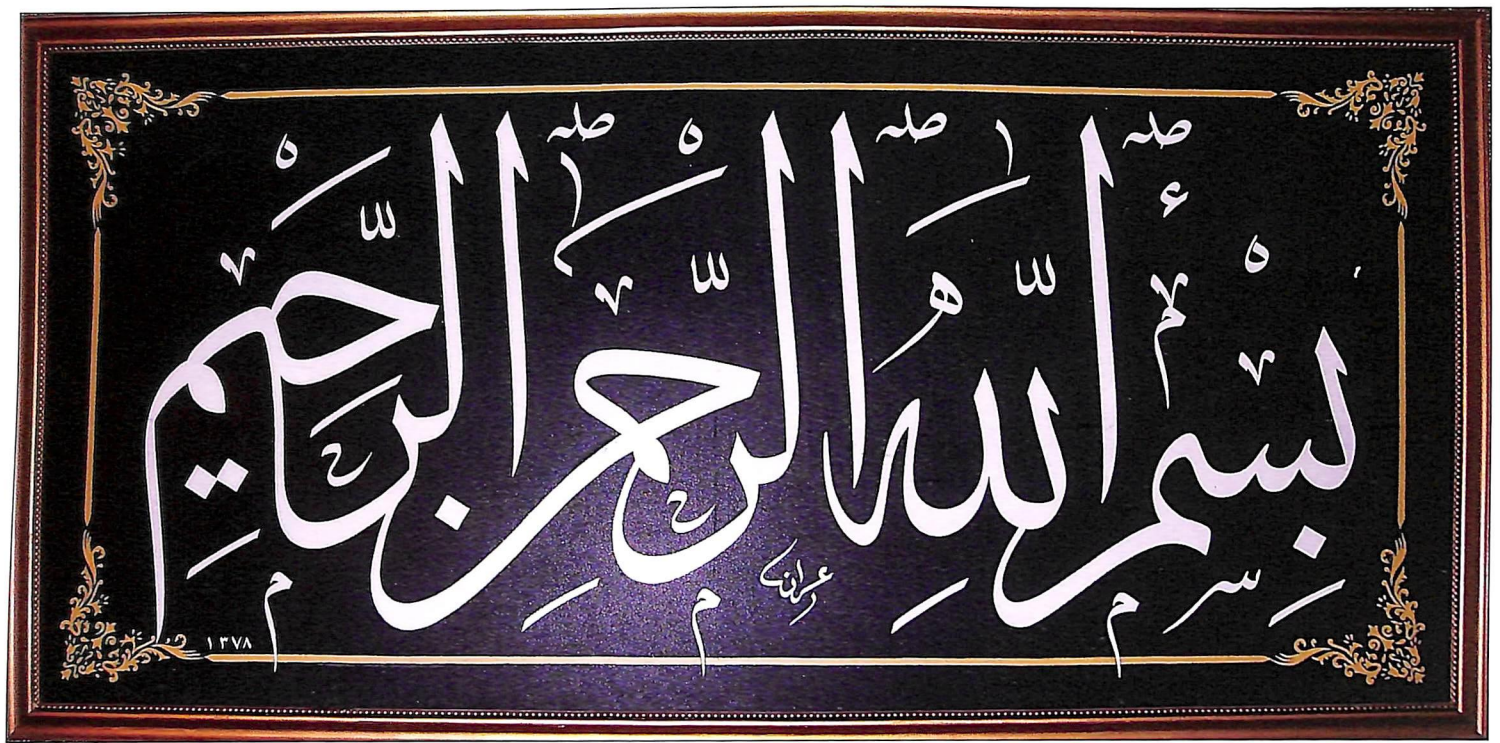 بِسْمِ ٱللَّهِ ٱلرَّحْمَٰنِ ٱلرَّحِيمِ
١٣٧٨